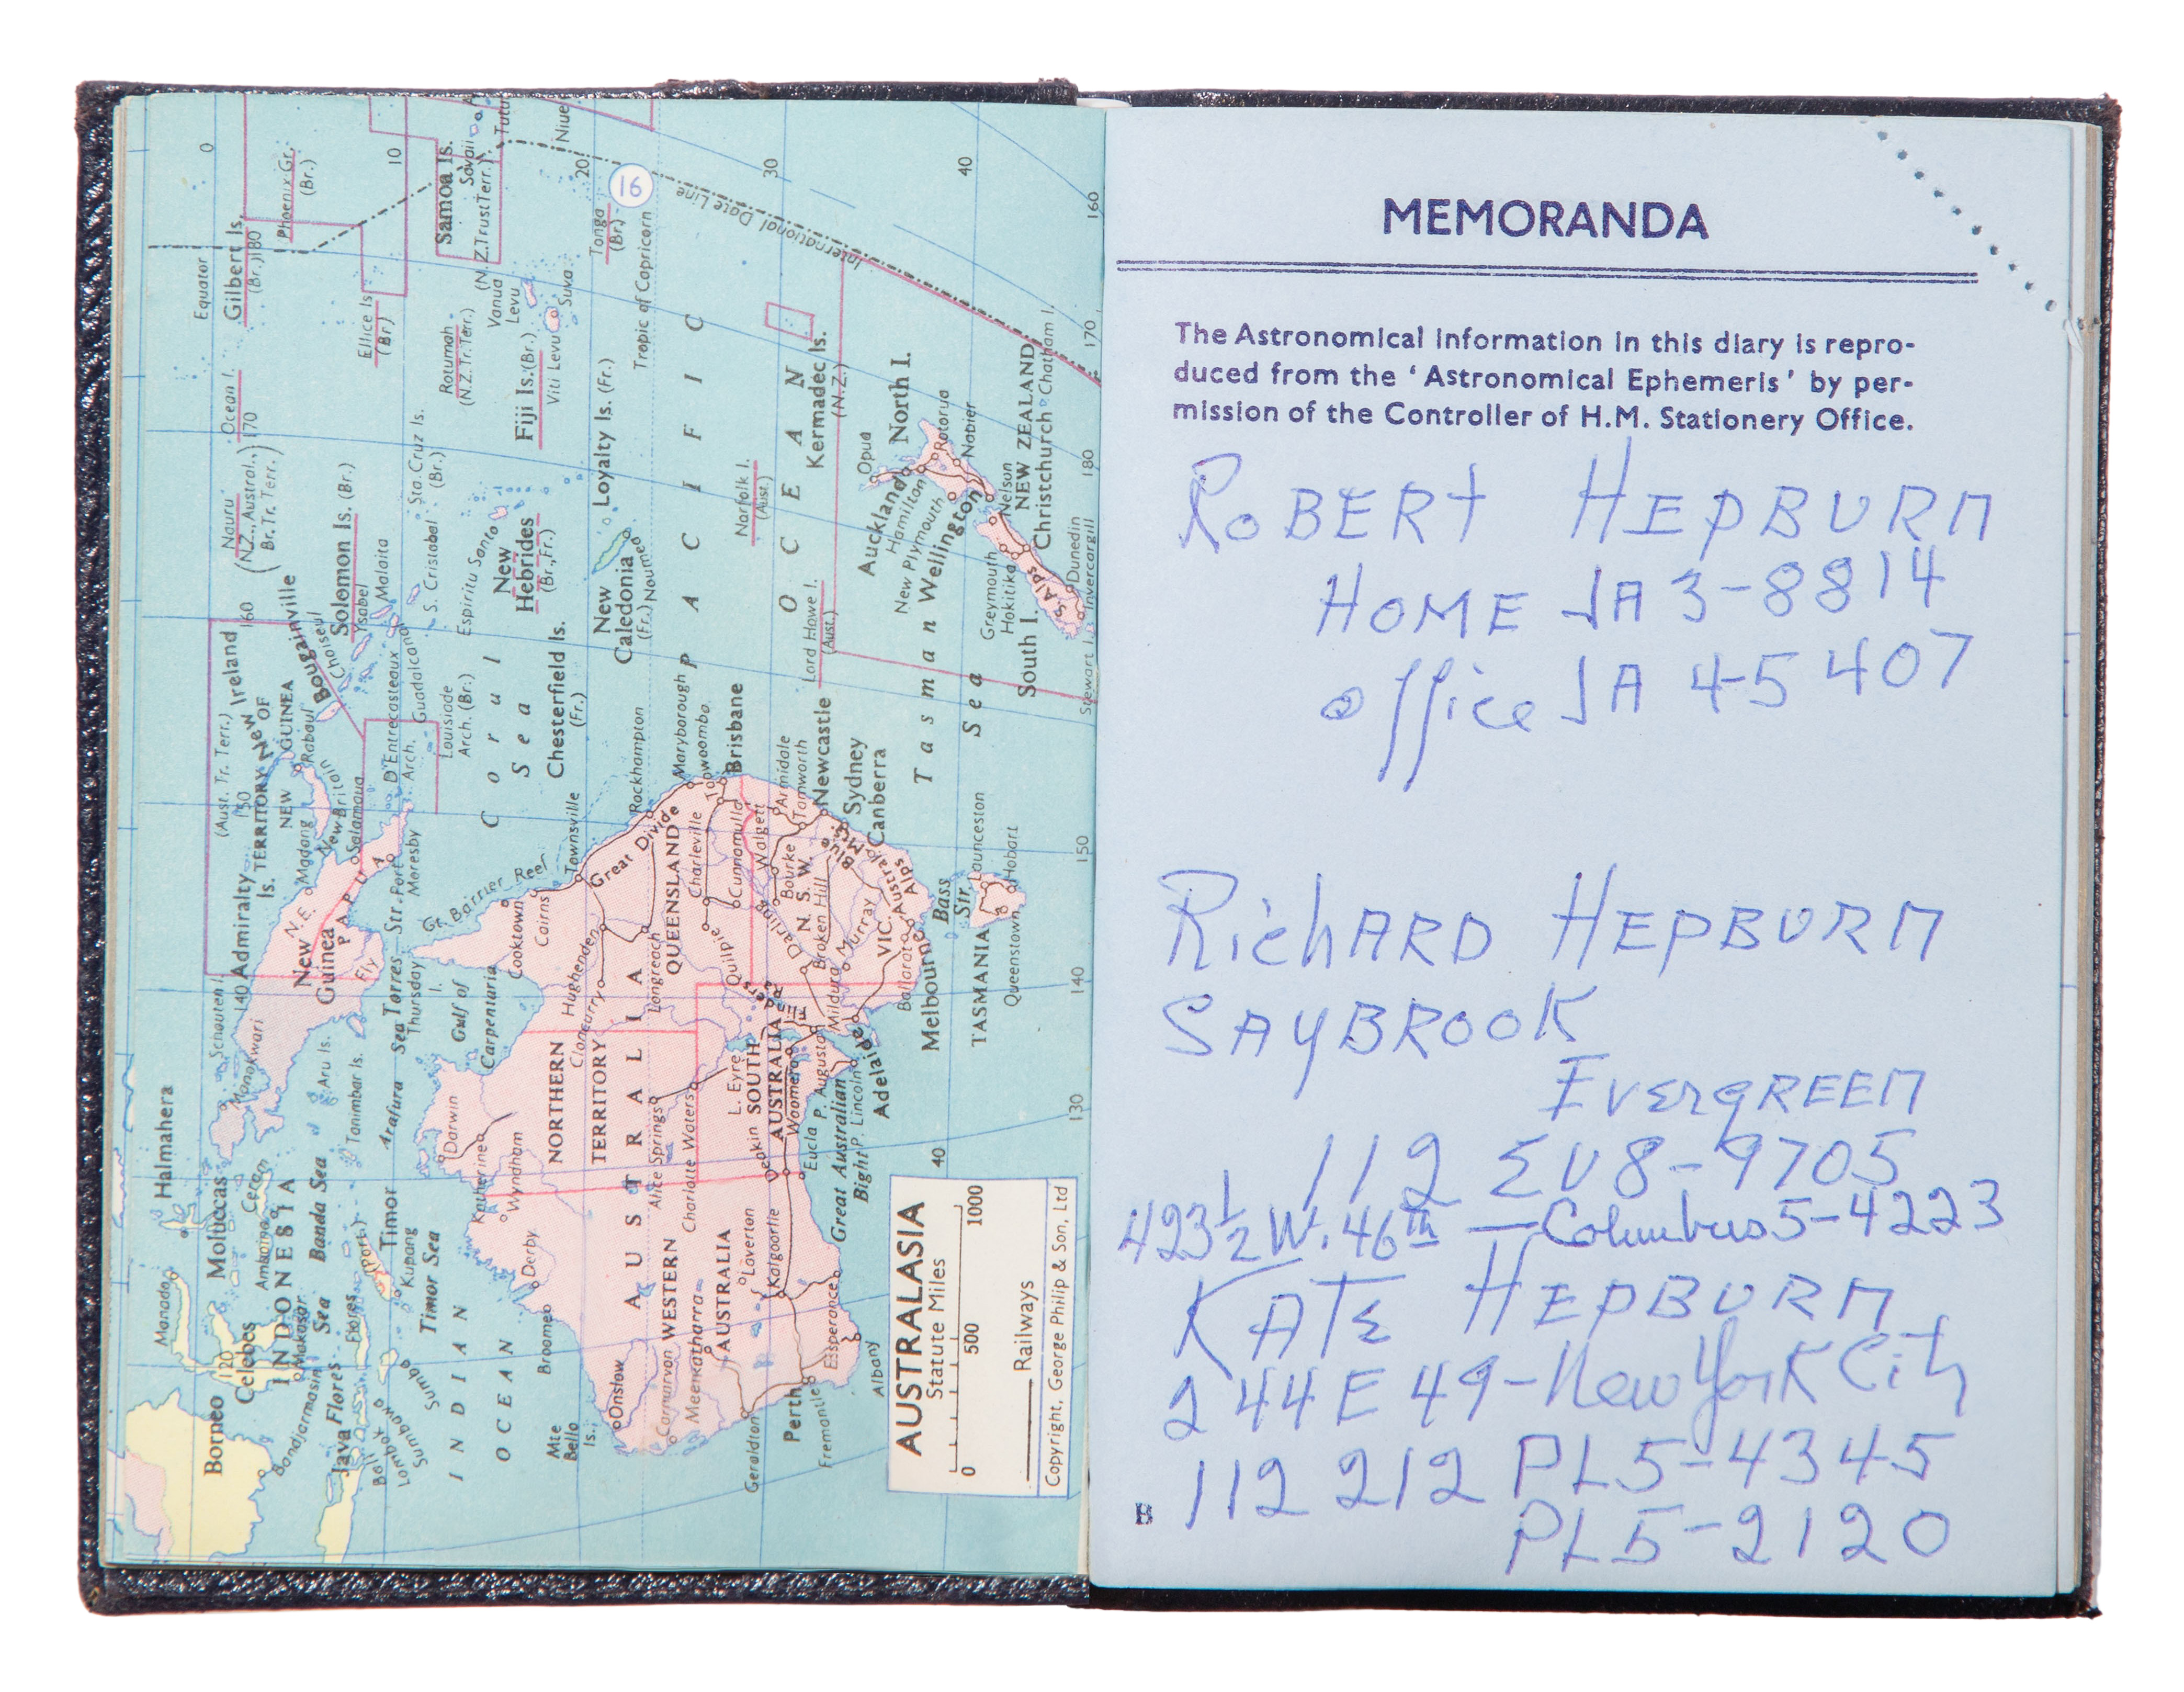 MEMORANDA
The Astronomical information in this diary is repro-
duced from the ‘Astronomical Ephemeris’ by per-
mission of the Controller of H.M. Stationery Office.
ROBERT HEPBURN
HOME JA 3-8814
office JA 45407
RichARD HEPBURN
SAYBROOK
EVERGREEN
112 EU8-9705
423½ W. 46th — Columbus 5-4223
KATE HEPBURN
244 E 49-New York City
112 212 PL5-4345
PL5-2120
B
AUSTRALASIA
Statute Miles
0 500 1000
Railways
Copyright, George Philip & Son, Ltd
16
0
10
20
30
40
Equator
Gilbert Is.
(Br.) 180
Phoenix Gr.
(Br.)
Ellice Is
(Br)
Samoa Is.
Savaii
Tutu
(N.Z.Trust Terr.)
Niue
Rotumah
(N.Z.Tr.Terr.)
Vanua
Levu
Suva
Fiji Is. (Br.)
Viti Levu
Tonga
(Br.)
Tropic of Capricorn
International Date Line
Ocean I.
170
Nauru
(N.Z., Austral.,
Br. Tr. Terr.)
Solomon Is. (Br.)
Ysabel
Malaita
Sta. Cruz Is.
(Br.)
S. Cristobal
Espiritu Santo
New
Hebrides
(Br., Fr.)
Loyalty Is. (Fr.)
New
Caledonia
(Fr.) Noumea
Chesterfield Is.
(Fr.)
Norfolk I.
(Aust.)
Kermadec Is.
(N.Z.)
Lord Howe I.
(Aust.)
PACIFIC
OCEAN
160
Bougainville
Choiseul
Guadalcanal
New Ireland
(Aust. Tr. Terr.)
TERRITORY OF
NEW GUINEA
Rabaul
New Britain
Madang
Salamaua
D'Entrecasteaux
Louisiade
Arch. (Br.)
Coral
Sea
150
Admiralty
Is.
N.E.
New
Guinea
PAPUA
Fly
Port
Moresby
Torres Str.
Thursday
I.
140
Schouten I.
Manokwari
Aru Is.
Tanimbar Is.
Arafura Sea
Gulf of
Carpentaria
Gt. Barrier Reef
Cooktown
Cairns
Townsville
Rockhampton
Maryborough
Toowoomba
Brisbane
Great Divide
QUEENSLAND
Charleville
Cunnamulla
Quilpie
Longreach
Hughenden
Cloncurry
Walgett
Bourke
Armidale
Tamworth
Newcastle
Sydney
Canberra
Blue Mts.
N. S. W.
Darling
Broken Hill
Murray
Mildura
VIC.
Austral.
Alps
Ballarat
Melbourne
Bass
Str.
TASMANIA
Launceston
Hobart
Queenstown
Tasman
Sea
Auckland
Opua
Hamilton
New Plymouth
Wellington
North I.
Rotorua
Napier
Nelson
NEW ZEALAND
Christchurch
Chatham I.
Greymouth
Hokitika
S. Alps
Dunedin
Invercargill
South I.
Stewart I.
160
170
180
150
140
130
40
Halmahera
Moluccas
Ceram
Banda Sea
INDONESIA
Manado
Celebes
120
Makasar
Borneo
Bandjarmasin
Java
Flores Sea
Flores
Bali
Lombok
Sumbawa
Sumba
Timor
(Port.)
Kupang
Timor Sea
INDIAN
OCEAN
Darwin
Katherine
Wyndham
Derby
Broome
NORTHERN
TERRITORY
AUSTRALIA
Alice Springs
Charlotte Waters
L. Eyre
SOUTH
AUSTRALIA
Woomera
P. Augusta
P. Lincoln
Adelaide
Deakin
Eucla
Great Australian
Bight
WESTERN
AUSTRALIA
Laverton
Kalgoorlie
Meekatharra
Carnarvon
Onslow
Mte
Bello
Is.
Geraldton
Perth
Fremantle
Esperance
Albany